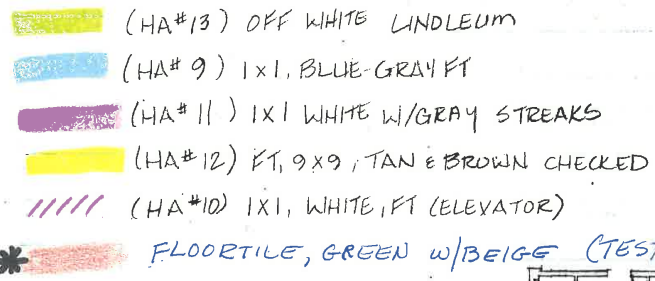 (HA#13) OFF WHITE LINOLEUM
(HA#9) 1X1, BLUE-GRAY FT
(HA#11) 1X1 WHITE W/GRAY STREAKS
(HA#12) FT, 9X9, TAN & BROWN CHECKED
(HA#10) 1X1, WHITE, FT (ELEVATOR)
FLOORTILE, GREEN W/BEIGE (TEST